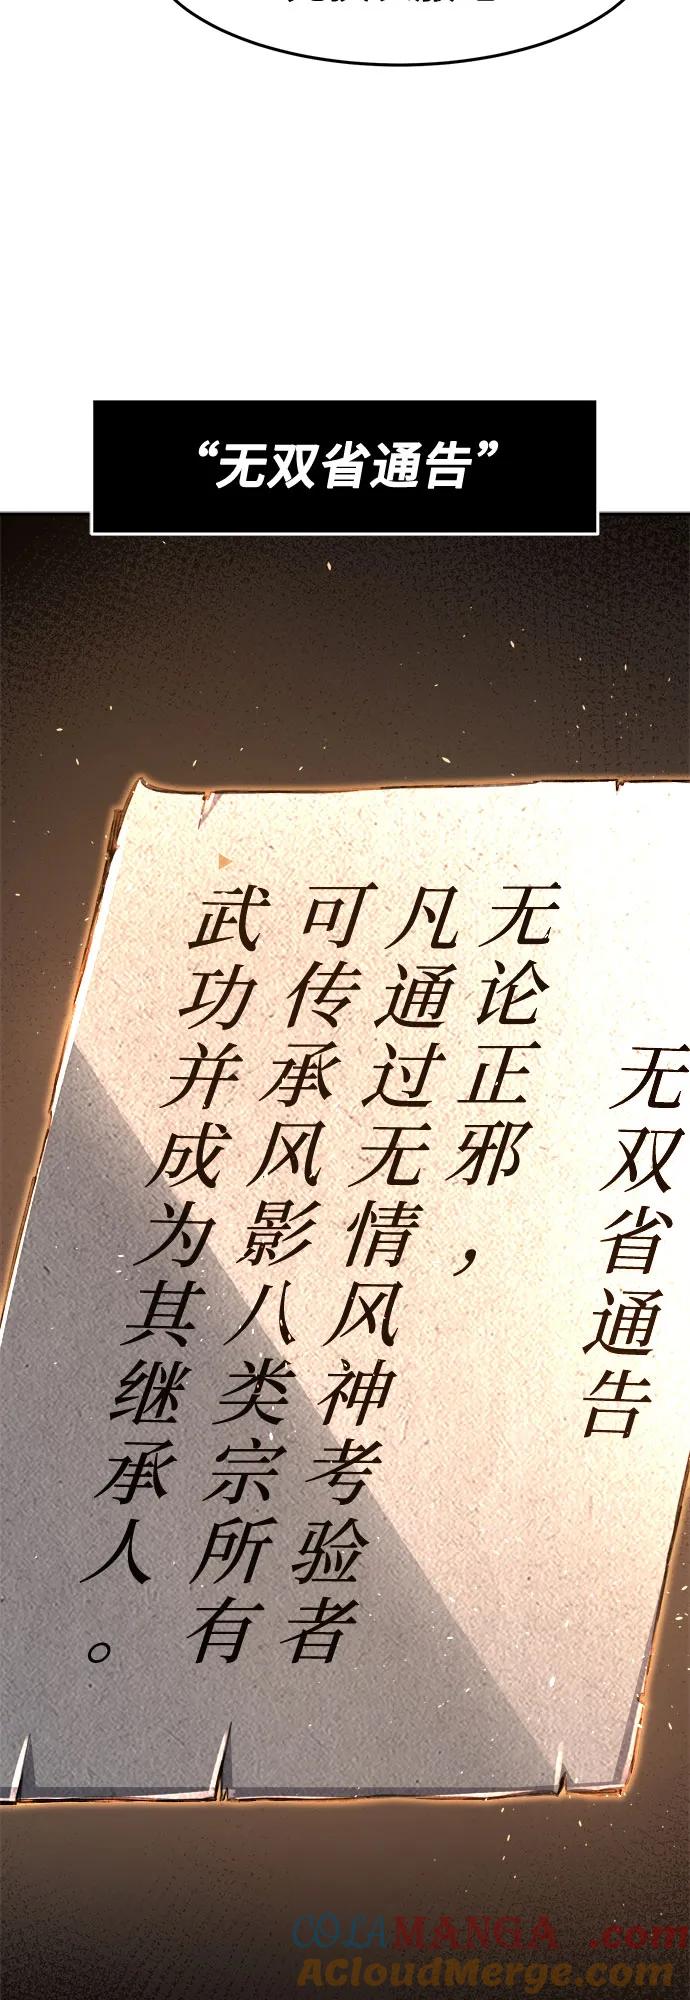 “无双省通告”
无双省通告
无论正邪，
凡通过无情风神考验者
可传承风影八类宗所有
武功并成为其继承人。
COLAMANGA.com
ACloudMerge.com